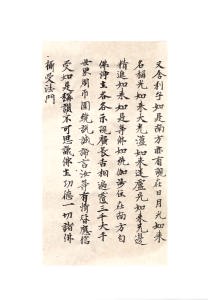 又舍利子如是南方亦有現在日月光如来
名稱光如来大光蘊如来迷盧光如来无邊
精進如来如是等佛如殑伽沙住在南方自
佛淨土各各示現廣長舌相遍覆三千大千
世界周帀圍繞說誠諦言汝等有情皆應信
受如是稱讚不可思議佛土功德一切諸佛
攝受法門